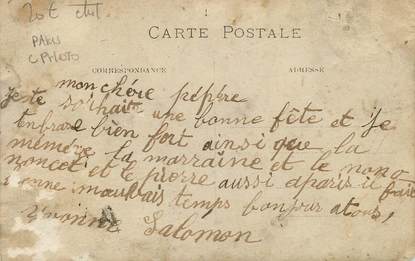 20 €
PARIS
C PHOTO
CARTE POSTALE
CORRESPONDANCE
ADRESSE
mon chére pépére
je te souhaite une bonne fête et je
tenbrase bien fort ainsi que la
mémére la marraine et le nono
et le pierre aussi aparis il fait
mauvais temps bonjour atous,
Yvonne Salomon